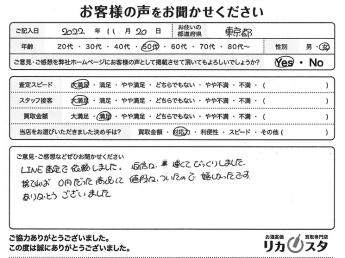 お客様の声をお聞かせください
ご記入日 2022 年 11 月 20 日 お住いの都道府県 東京都
年齢 20代・30代・40代・50代・60代・70代・80代〜 性別 男・女
ご意見・ご感想を弊社ホームページにお客様の声として掲載させて頂いてもよろしいでしょうか? Yes・No
査定スピード 大満足・満足・やや満足・どちらでもない・やや不満・不満・( )
スタッフ接客 大満足・満足・やや満足・どちらでもない・やや不満・不満・( )
買取金額 大満足・満足・やや満足・どちらでもない・やや不満・不満・( )
当店をお選びいただきました決め手は? 買取金額・対応・利便性・スピード・その他( )
ご意見・ご感想などぜひお聞かせください
LINE査定で依頼しました。返答が 速くてびっくりしました。
捨てれば 0円だった商品に値段がついたので 嬉しかったです
ありがとう ございました
ご協力ありがとうございました。
この度は誠にありがとうございました。
お酒高価 買取専門店
リカスタ